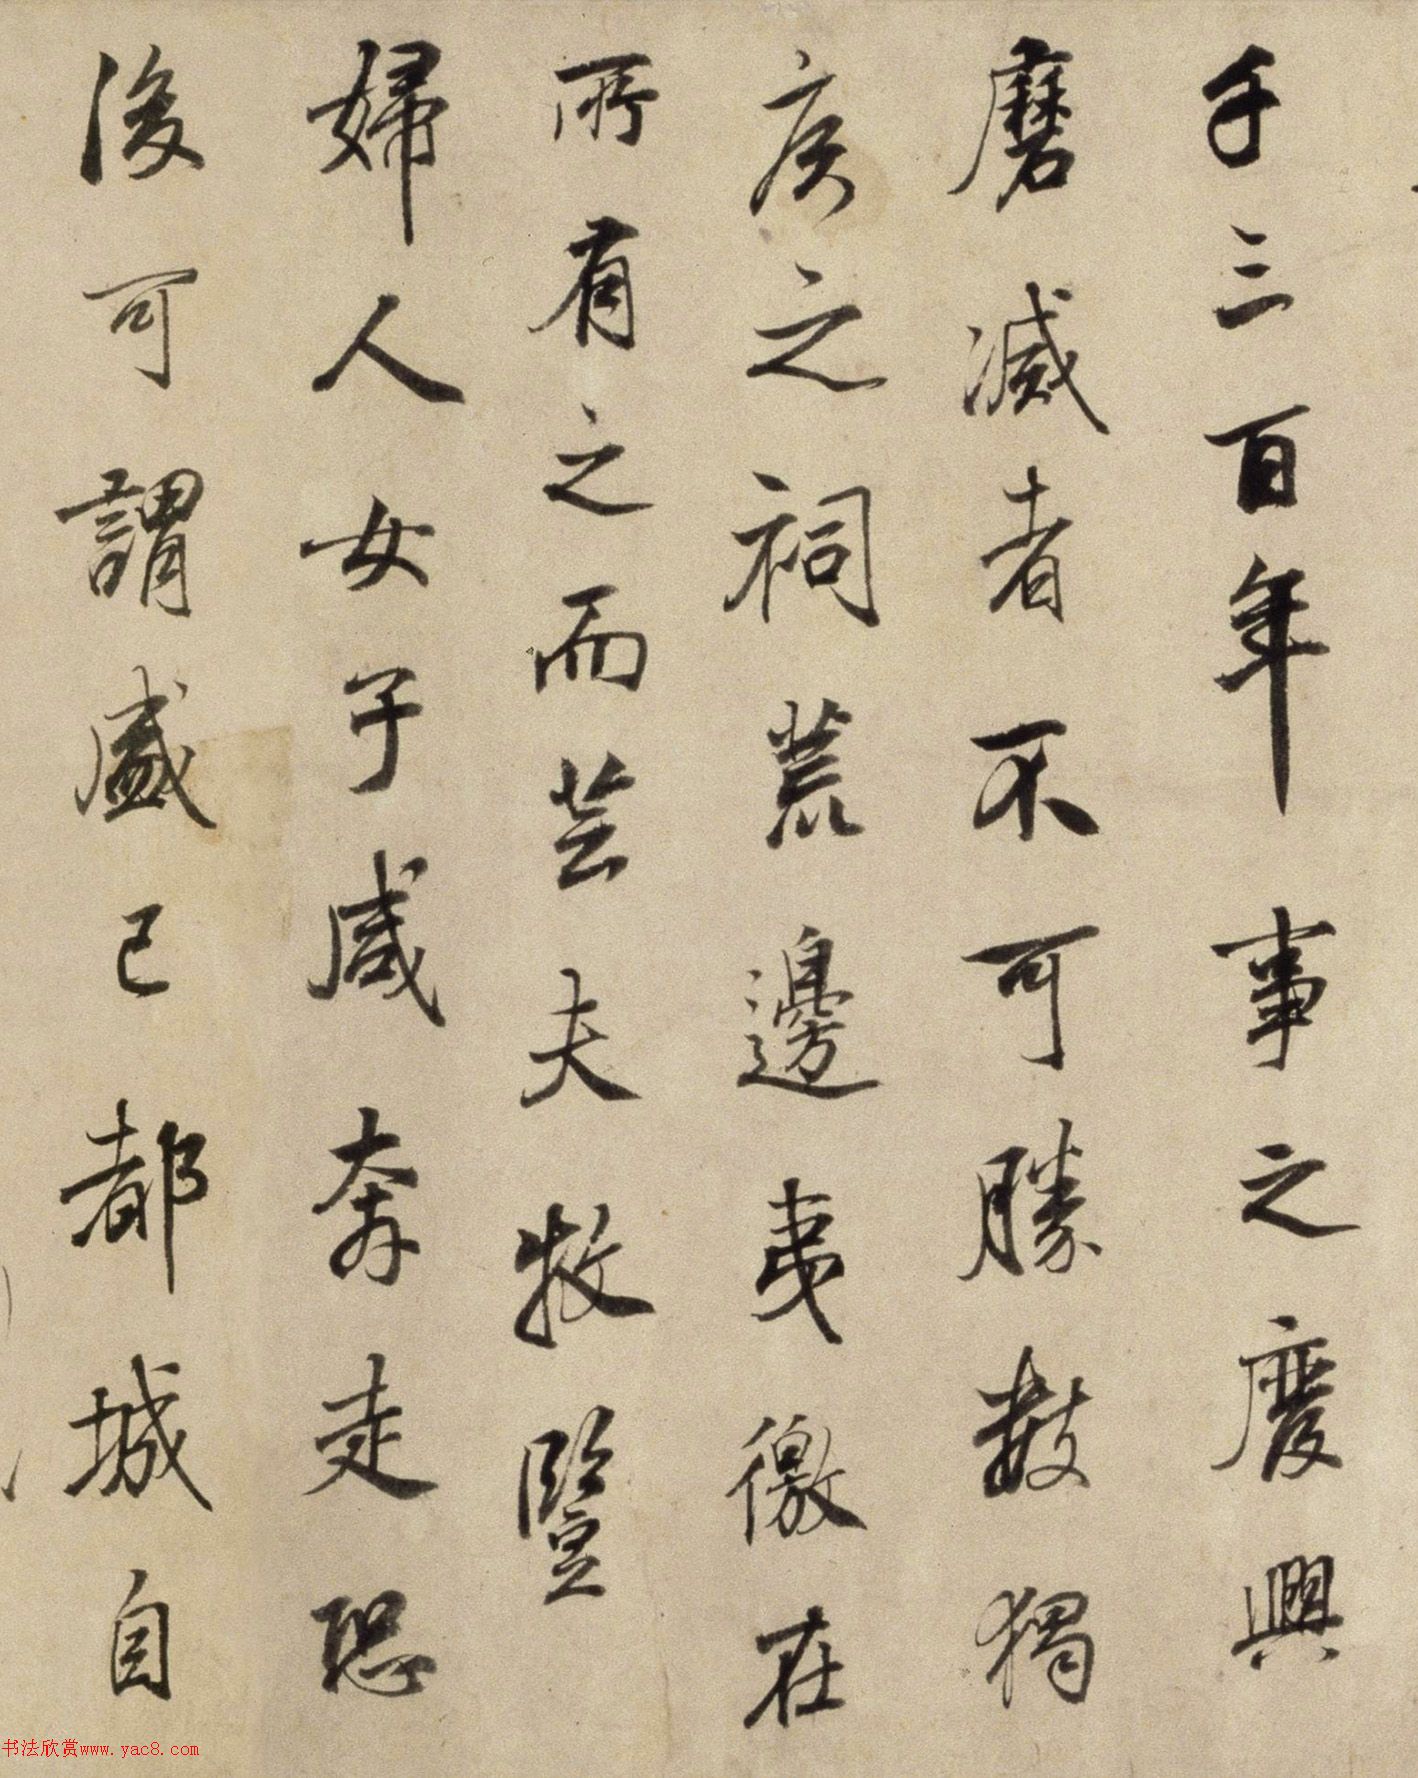 千三百年事之廢興
磨滅者不可勝數獨
侯之祠荒邊夷徼在
所有之而芸夫牧豎
婦人女子咸奔走恐
後可謂盛已都城自
书法欣赏www.yac8.com